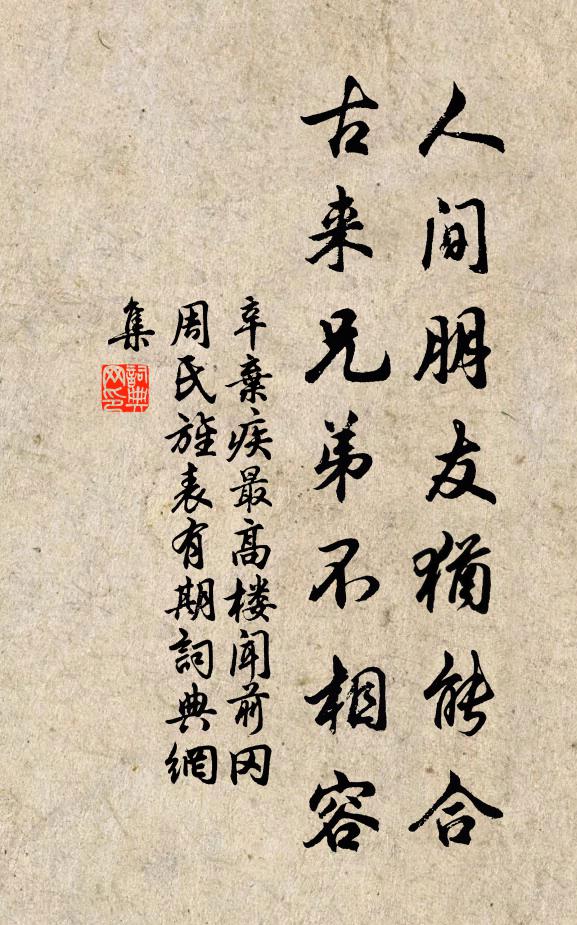 人间朋友犹能合
古来兄弟不相容
辛棄疾最高楼闻前冈
周氏旌表有期詞典網
集
詞典网印